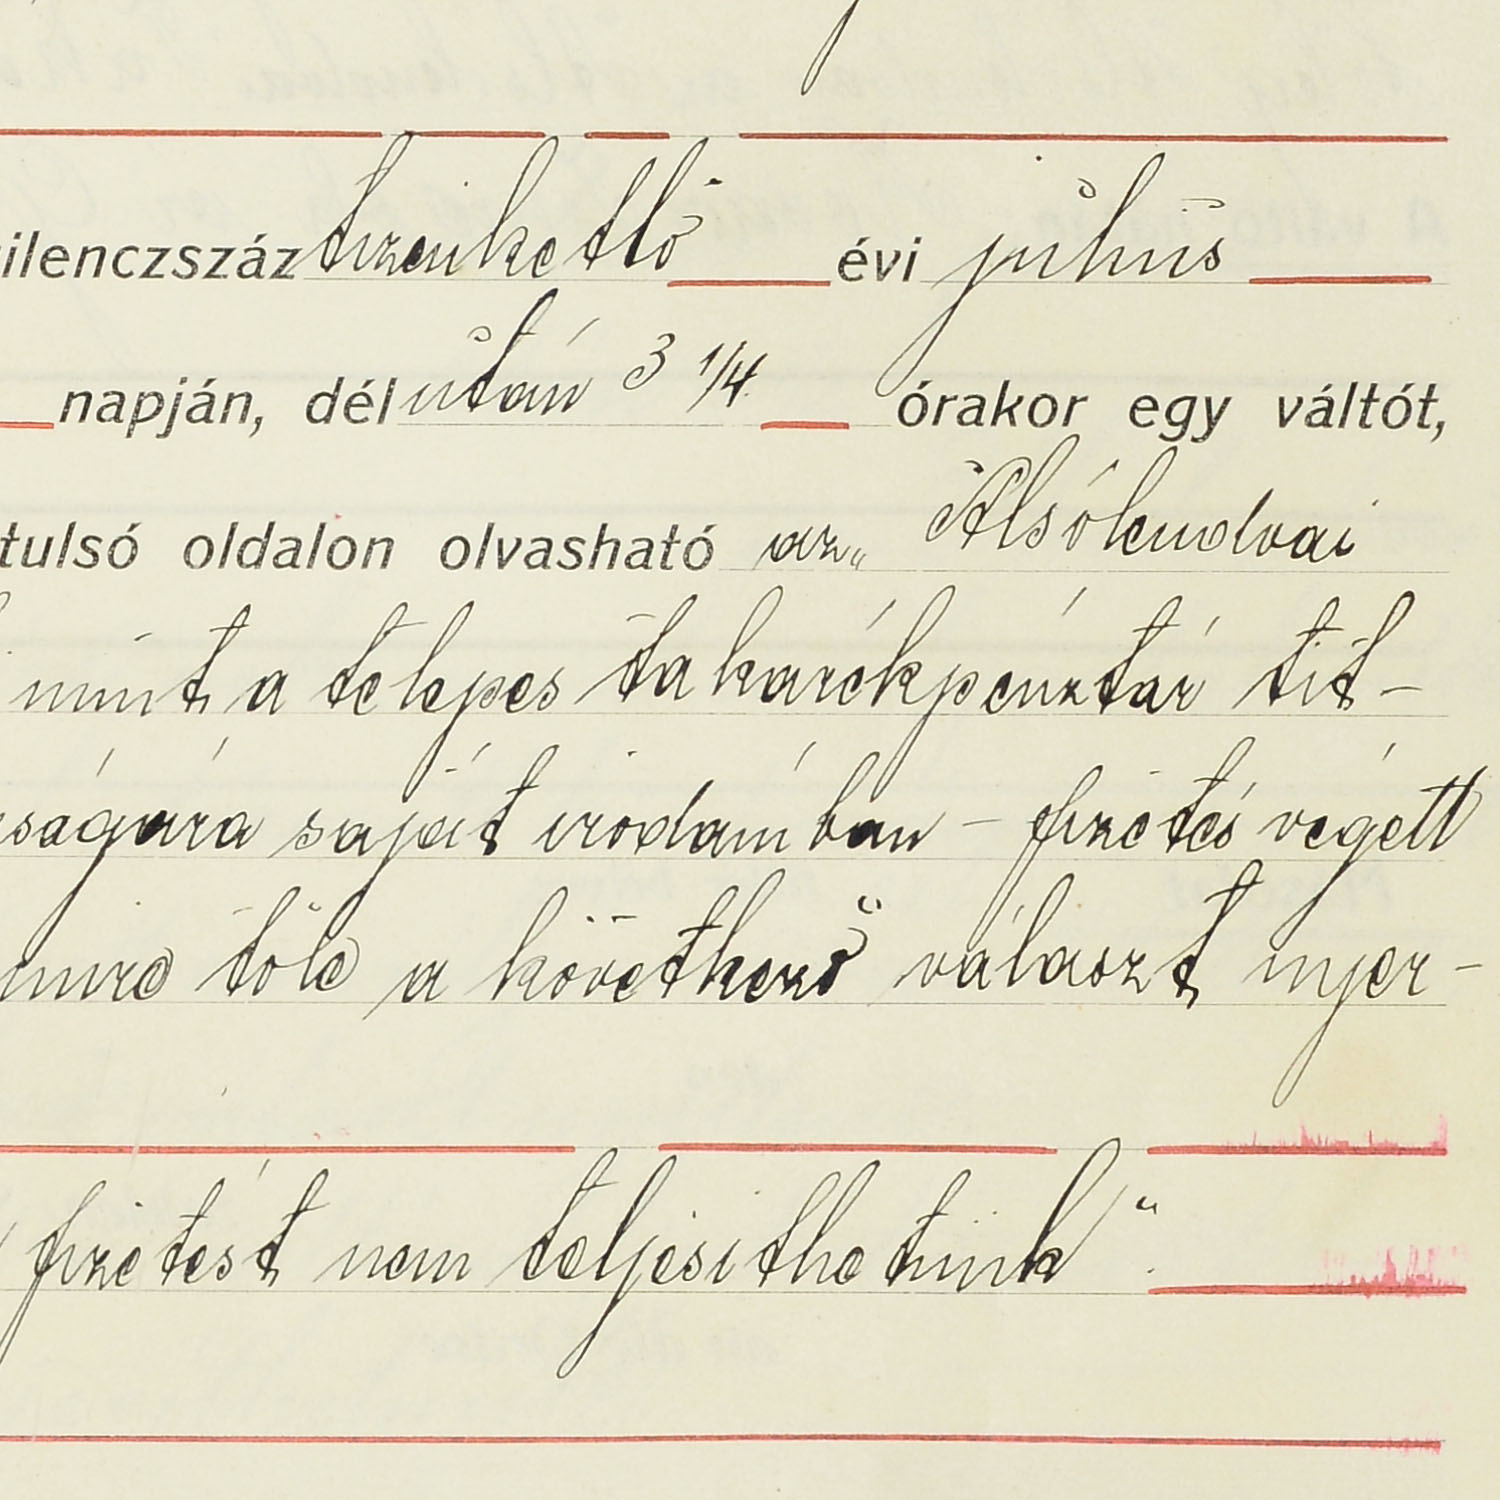 ilenczszáz tizenkettő évi július
napján, délután 3 1/4 órakor egy váltót,
tulsó oldalon olvasható az „Alsólendvai
mint a telepes takarékpénztár tit-
ságára saját irodámban - fizetés végett
mire tőle a következő választ nyer-
fizetést nem teljesithetünk"